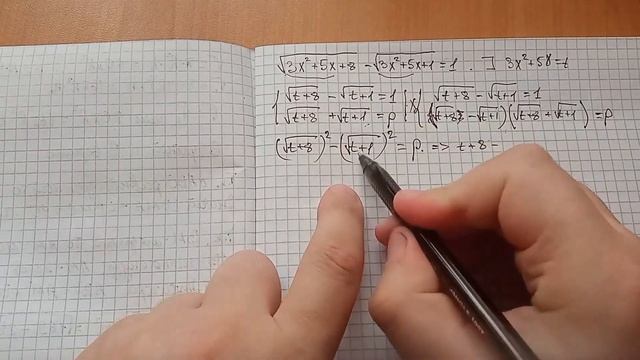 √3x²+5x+8 - √3x²+5x+1 = 1 . ∃ 3x²+5x=t
{ √t+8 - √t+1 = 1 |x| { √t+8 - √t+1 = 1
√t+8 + √t+1 = p (√t+8 - √t+1)(√t+8 + √t+1) = p
(√t+8)² - (√t+1)² = p. => t+8 -